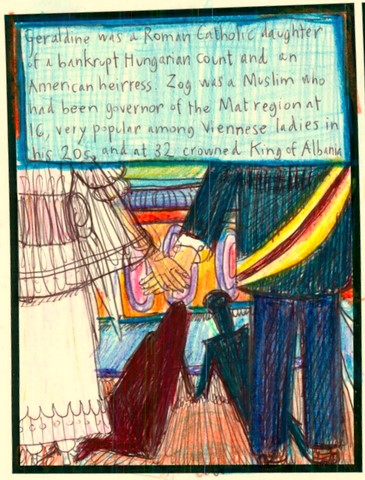 Geraldine was a Roman Catholic daughter
of a bankrupt Hungarian count and an
American heirress. Zog was a Muslim who
had been governor of the Mat region at
16, very popular among Viennese ladies in
his 20s, and at 32 crowned King of Albania